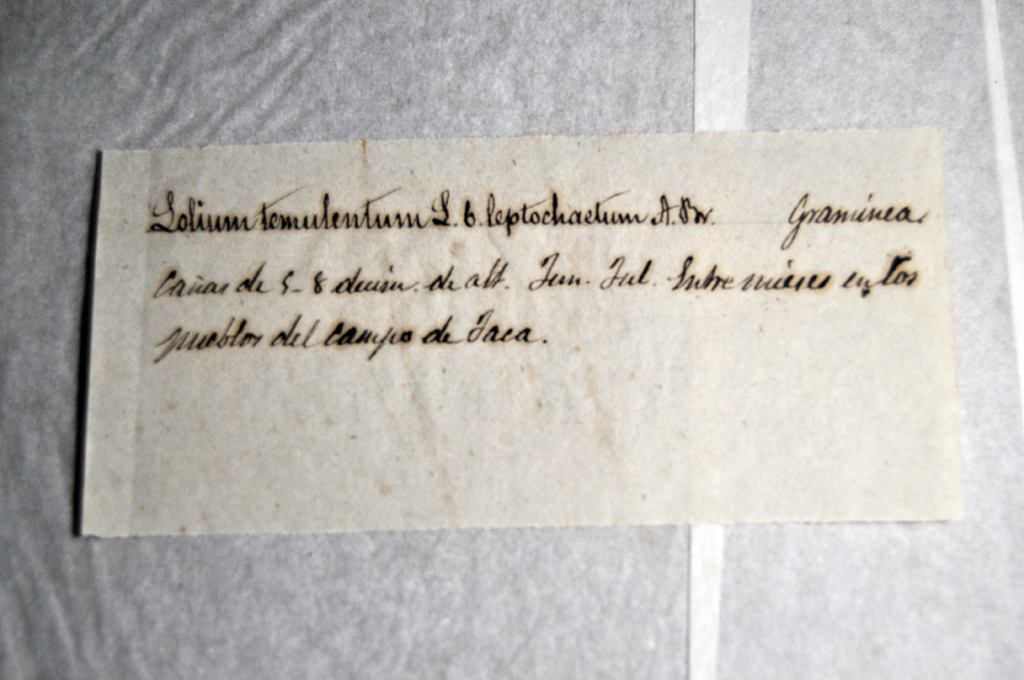 Lolium temulentum L. b. leptochaetum A. Br. Gramínea.
Cañas de 5-8 decim. de alt. Jun. Jul. Entre mieses en los
pueblos del campo de Jaca.